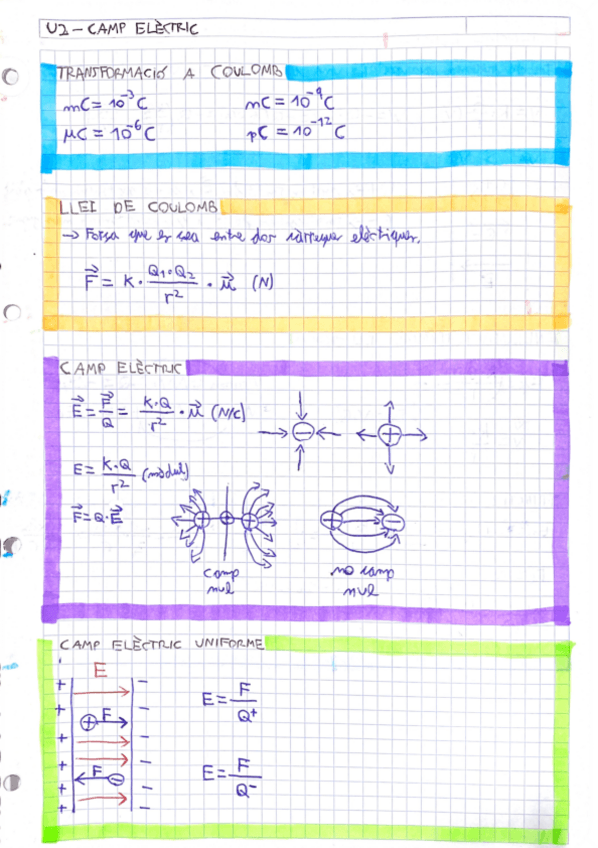 U2 – CAMP ELÈCTRIC
TRANSFORMACIÓ A COULOMB
mC = 10⁻³ C
nC = 10⁻⁹ C
μC = 10⁻⁶ C
pC = 10⁻¹² C
LLEI DE COULOMB
→ Força que es crea entre dos càrregues elèctriques.
F⃗ = K · Q₁·Q₂ / r² · u⃗ (N)
CAMP ELÈCTRIC
E⃗ = F⃗ / Q = K·Q / r² · u⃗ (N/C)
− +
E = K·Q / r² (mòdul)
F⃗ = Q·E⃗
+ + +
+ −
camp nul
no camp nul
CAMP ELÈCTRIC UNIFORME
E
+ −
+ −
+ F
E = F / Q⁺
+ −
+ −
F −
E = F / Q⁻
+ −
+ −